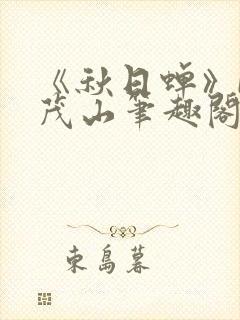 《秋日蝉》
茂山笔趣阁
东岛暮